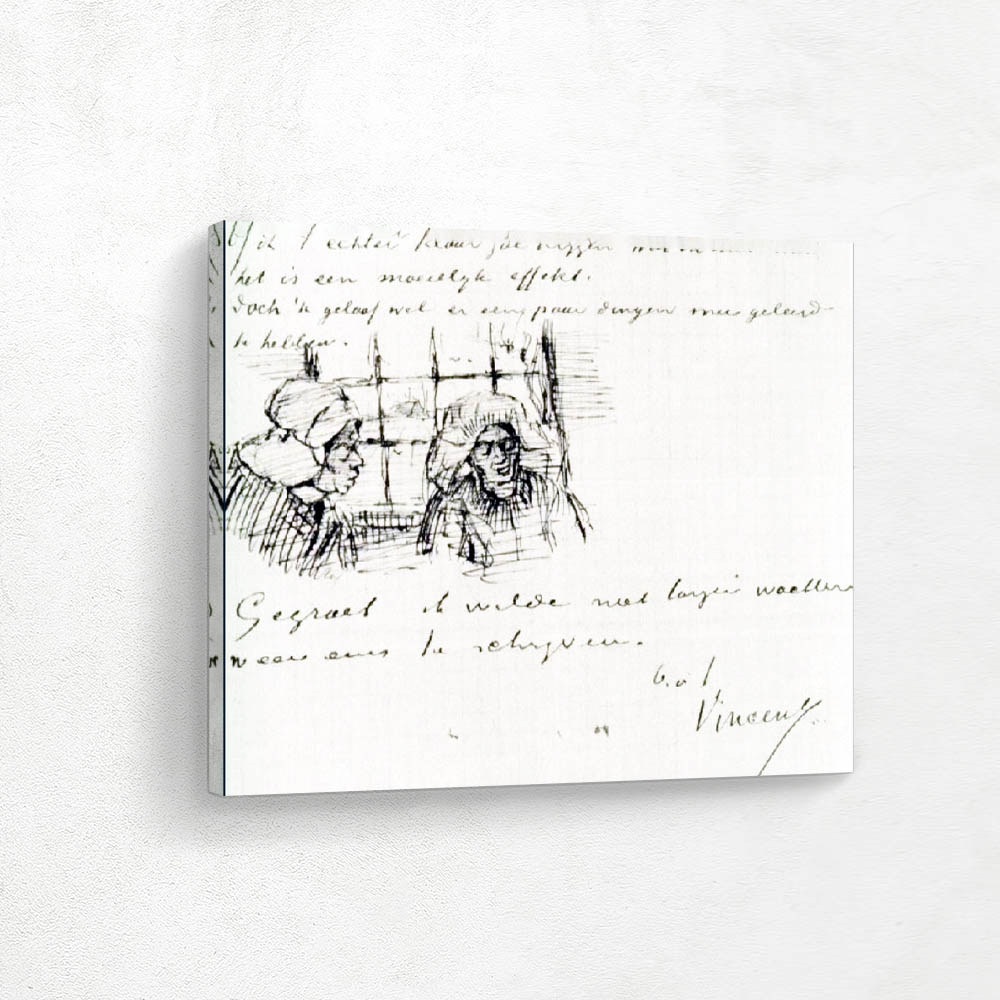 ik 't echter klaar zal krijgen
het is een moeielyk effekt.
Doch 'k geloof wel er een paar dingen mee geleerd
te hebben.
Gegroet ik wilde niet langer wachten
weer eens te schryven.
b. à t
Vincent